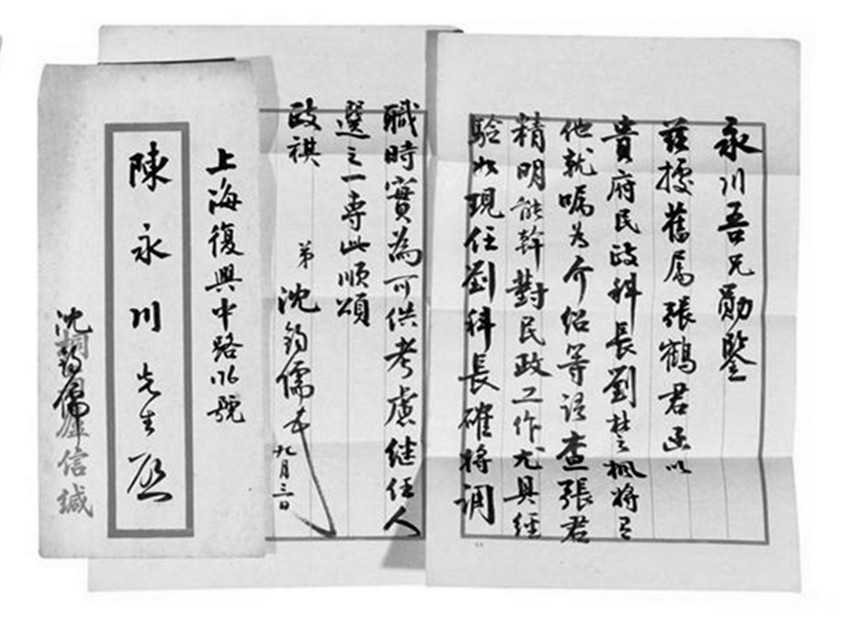 永川吾兄勛鑒
茲據舊屬張鶴君函以
貴府民政科長劉楚楓將有
他就囑為介紹等語查張君
精明能幹對民政工作尤具經
驗如現任劉科長確將調
職時實為可供考慮繼任人
選之一專此順頌
政祺
弟沈鈞儒 九月三日
上海復興中路 號
陳永川先生啟
沈鈞儒
信緘